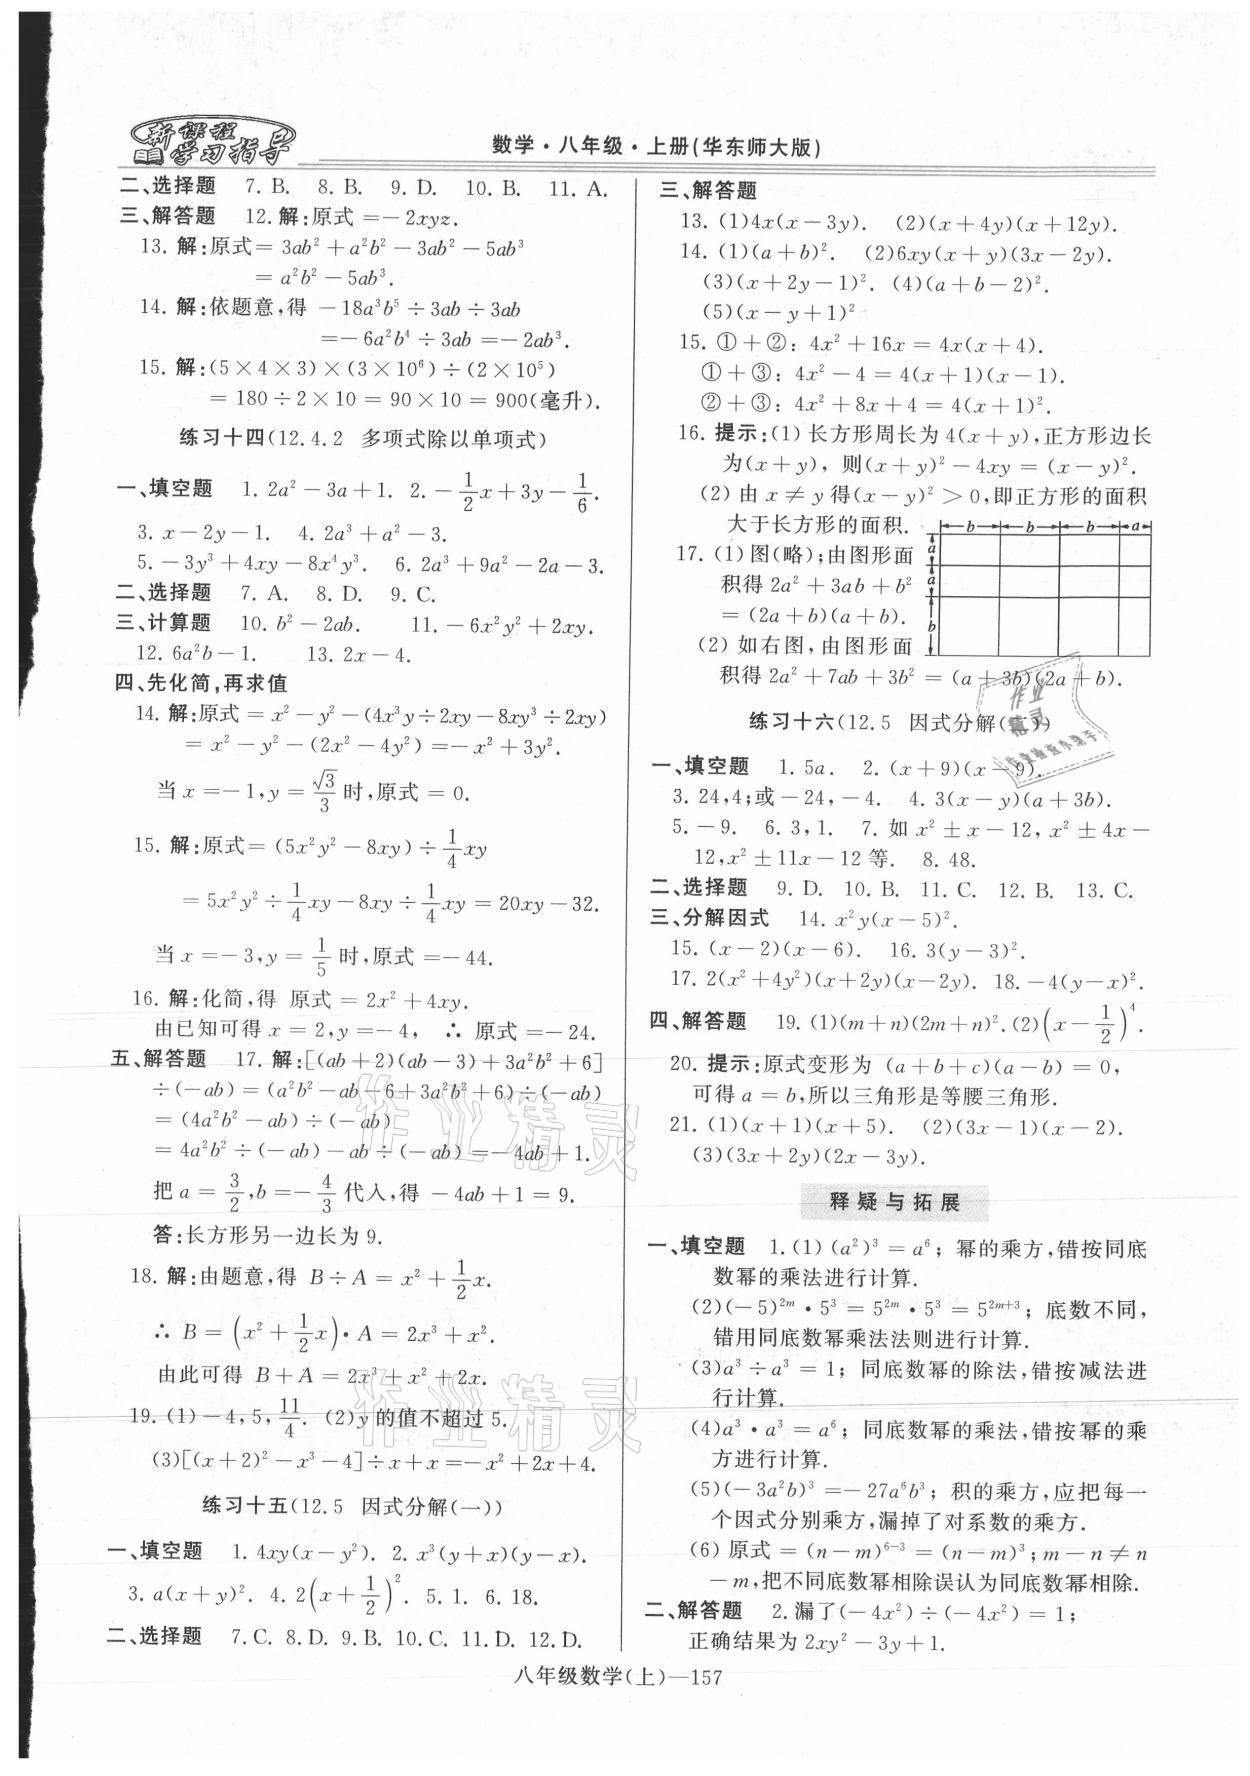 新课程
学习指导
数学·八年级·上册(华东师大版)
二、选择题 7. B. 8. B. 9. D. 10. B. 11. A.
三、解答题 12. 解:原式 =－2xyz.
13. 解:原式= 3ab²＋a²b²－3ab²－5ab³
= a²b²－5ab³.
14. 解:依题意,得 －18a³b⁵÷3ab÷3ab
=－6a²b⁴÷3ab =－2ab³.
15. 解:(5×4×3)×(3×10⁶)÷(2×10⁵)
= 180÷2×10 = 90×10 = 900(毫升).
练习十四(12.4.2 多项式除以单项式)
一、填空题 1. 2a²－3a＋1. 2. －1/2x＋3y－1/6.
3. x－2y－1. 4. 2a³＋a²－3.
5. －3y³＋4xy－8x⁴y³. 6. 2a³＋9a²－2a－3.
二、选择题 7. A. 8. D. 9. C.
三、计算题 10. b²－2ab. 11. －6x²y²＋2xy.
12. 6a²b－1. 13. 2x－4.
四、先化简,再求值
14. 解:原式= x²－y²－(4x³y÷2xy－8xy³÷2xy)
= x²－y²－(2x²－4y²)=－x²＋3y².
当 x =－1,y = √3/3 时,原式 = 0.
15. 解:原式= (5x²y²－8xy)÷1/4xy
= 5x²y²÷1/4xy－8xy÷1/4xy = 20xy－32.
当 x =－3,y = 1/5 时,原式 =－44.
16. 解:化简,得 原式 = 2x²＋4xy.
由已知可得 x = 2,y =－4, ∴ 原式 =－24.
五、解答题 17. 解:[(ab＋2)(ab－3)＋3a²b²＋6]
÷(－ab)= (a²b²－ab－6＋3a²b²＋6)÷(－ab)
= (4a²b²－ab)÷(－ab)
= 4a²b²÷(－ab)－ab÷(－ab)=－4ab＋1.
把 a = 3/2,b =－4/3 代入,得 －4ab＋1 = 9.
答:长方形另一边长为 9.
18. 解:由题意,得 B÷A = x²＋1/2x.
∴ B = (x²＋1/2x)·A = 2x³＋x².
由此可得 B＋A = 2x³＋x²＋2x.
19. (1)－4,5,11/4. (2)y 的值不超过 5.
(3)[(x＋2)²－x³－4]÷x＋x =－x²＋2x＋4.
练习十五(12.5 因式分解(一))
一、填空题 1. 4xy(x－y²). 2. x³(y＋x)(y－x).
3. a(x＋y)². 4. 2(x＋1/2)². 5. 1. 6. 18.
二、选择题 7. C. 8. D. 9. B. 10. C. 11. D. 12. D.
三、解答题
13. (1)4x(x－3y). (2)(x＋4y)(x＋12y).
14. (1)(a＋b)². (2)6xy(x＋y)(3x－2y).
(3)(x＋2y－1)². (4)(a＋b－2)².
(5)(x－y＋1)²
15. ①＋②: 4x²＋16x = 4x(x＋4).
①＋③: 4x²－4 = 4(x＋1)(x－1).
②＋③: 4x²＋8x＋4 = 4(x＋1)².
16. 提示:(1)长方形周长为 4(x＋y),正方形边长
为(x＋y), 则(x＋y)²－4xy = (x－y)².
(2) 由 x ≠ y 得(x－y)² > 0,即正方形的面积
大于长方形的面积.
17. (1)图(略);由图形面
积得 2a²＋3ab＋b²
= (2a＋b)(a＋b).
(2) 如右图,由图形面
积得 2a²＋7ab＋3b² = (a＋3b)(2a＋b).
b b b a
a
a
b
练习十六(12.5 因式分解(二))
一、填空题 1. 5a. 2. (x＋9)(x－9).
3. 24,4;或－24,－4. 4. 3(x－y)(a＋3b).
5. －9. 6. 3,1. 7. 如 x²±x－12, x²±4x－
12,x²±11x－12 等. 8. 48.
二、选择题 9. D. 10. B. 11. C. 12. B. 13. C.
三、分解因式 14. x²y(x－5)².
15. (x－2)(x－6). 16. 3(y－3)².
17. 2(x²＋4y²)(x＋2y)(x－2y). 18. －4(y－x)².
四、解答题 19. (1)(m＋n)(2m＋n)². (2)(x－1/2)⁴.
20. 提示:原式变形为 (a＋b＋c)(a－b) = 0,
可得 a = b,所以三角形是等腰三角形.
21. (1)(x＋1)(x＋5). (2)(3x－1)(x－2).
(3)(3x＋2y)(2x－3y).
释疑与拓展
一、填空题 1. (1) (a²)³ = a⁶; 幂的乘方,错按同底
数幂的乘法进行计算.
(2)(－5)²ᵐ·5³ = 5²ᵐ·5³ = 5²ᵐ⁺³; 底数不同,
错用同底数幂乘法法则进行计算.
(3)a³÷a³ = 1; 同底数幂的除法,错按减法进
行计算.
(4)a³·a³ = a⁶; 同底数幂的乘法,错按幂的乘
方进行计算.
(5)(－3a²b)³ =－27a⁶b³; 积的乘方,应把每一
个因式分别乘方,漏掉了对系数的乘方.
(6) 原式 = (n－m)⁶⁻³ = (n－m)³; m－n ≠ n
－m,把不同底数幂相除误认为同底数幂相除.
二、解答题 2. 漏了(－4x²)÷(－4x²) = 1;
正确结果为 2xy²－3y＋1.
八年级数学(上)—157
作业精灵
作业精灵
作业
精灵
作业检查小助手